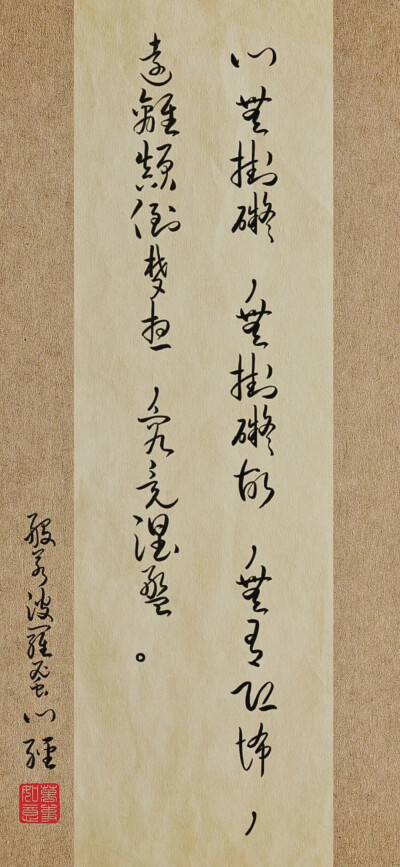 心無掛礙，無掛礙故，無有恐怖，
遠離顛倒夢想，究竟涅盤。
般若波羅蜜心經
萬事如意